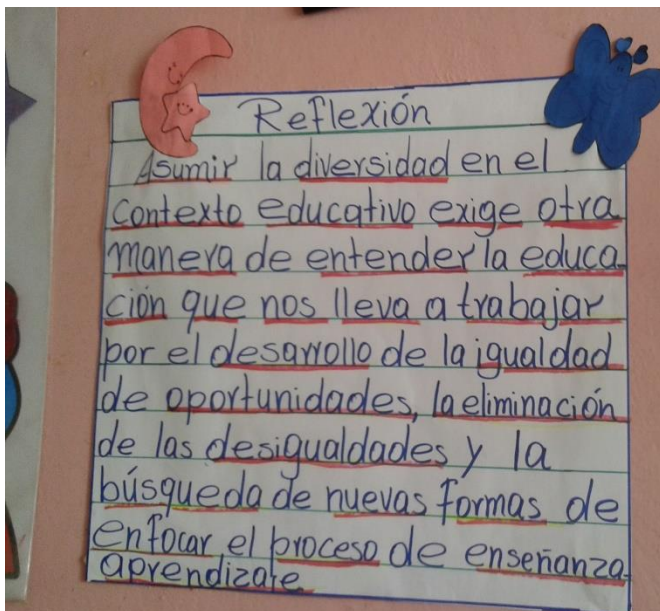 Reflexión
Asumir la diversidad en el
contexto educativo exige otra
manera de entender la educa-
ción que nos lleva a trabajar
por el desarrollo de la igualdad
de oportunidades, la eliminación
de las desigualdades y la
búsqueda de nuevas formas de
enfocar el proceso de enseñanza-
aprendizaje